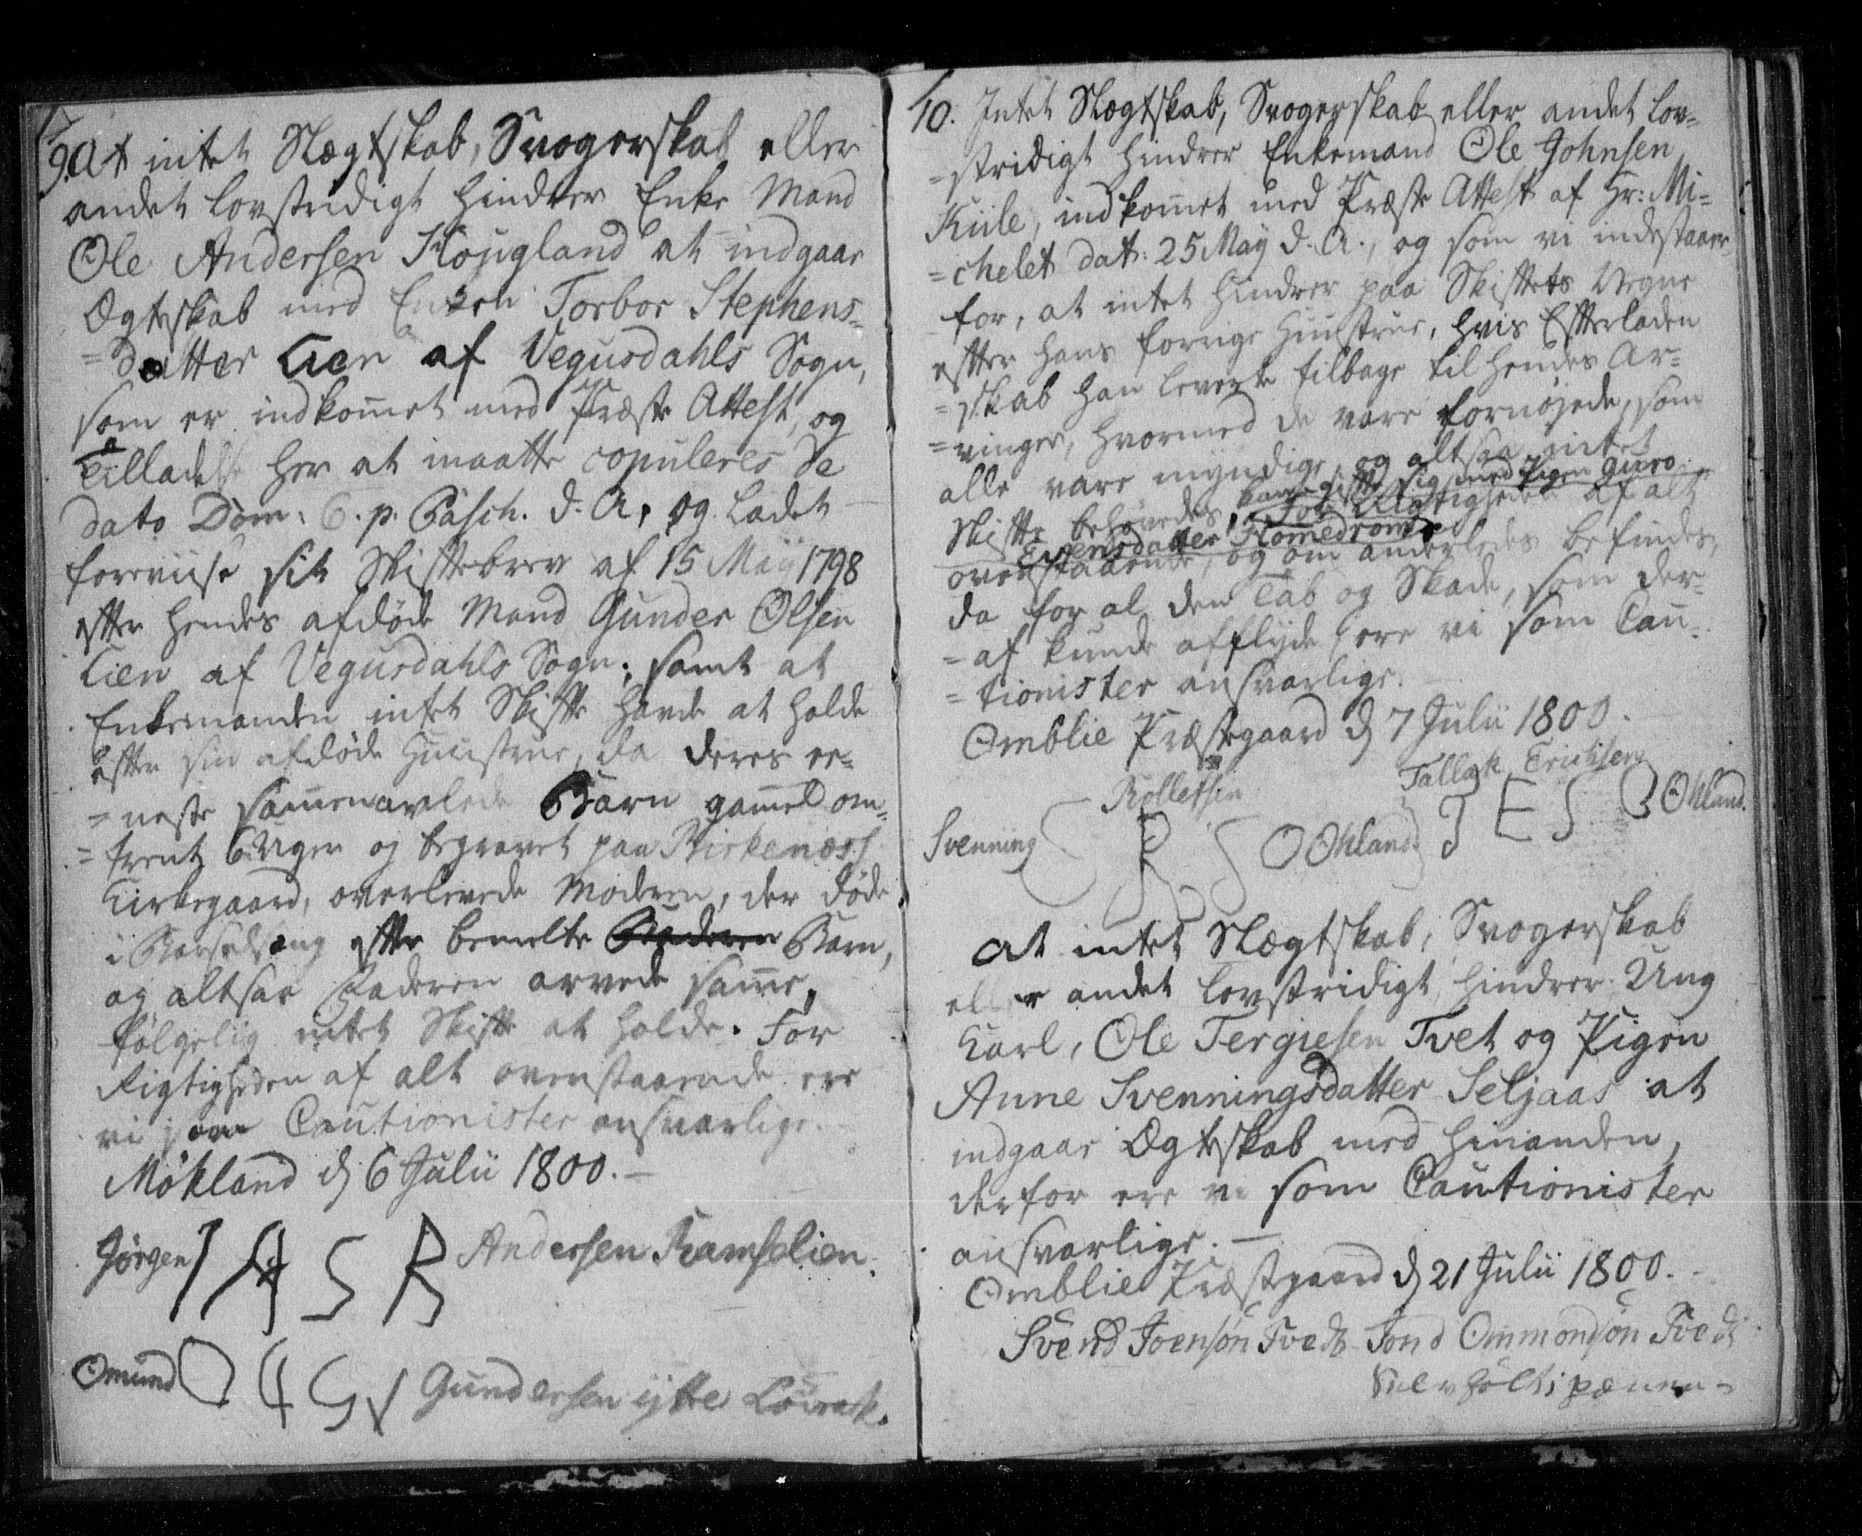 9. At intet Slægtskab, Svogerskab eller
andet lovstridigt hindrer Enke Mand
Ole Andersen Hougland at indgaae
Ægteskab med Enken Torbor Stephens-
=datter Lien af Vegusdahls Sogn,
som er indkomet med Præste Attest, og
Tilladelse her at maatte copuleres de
dato Dom: 6. p. Pasch. d. A., og ladet
foreviise sit Skiftebrev af 15 Maij 1798
efter hendes afdöde Mand Gunder Olsen
Lien af Vegusdahls Sogn; samt at
Enkemanden intet Skifte havde at holde
efter sin afdöde Huustrue, da deres ee-
=neste sammenavlede Barn gamel om-
=trent 6 Uger og begravet paa Birkenæss
Kirkegaard, overlevede Moderen, der döde
i Barselsæng efter bemelte Barn,
og altsaa Faderen arvede samme,
fölgelig intet Skifte at holde. For
Rigtigheden af alt ovenstaaende ere
vi som Cautionister ansvarlige.
Mökland d 6 Julii 1800.
Jörgen I A S R Andersen Ramselien.
Omund O G S Gundersen ijtre
10. Intet Slægtskab, Svogerskab eller andet lov-
=stridigt hindrer Enkemand Ole Johnsen
Kiile, indkomet med Præste Attest af Hr: Mi-
=chelet dat: 25 Maij d. A., og som vi indestaaer
for, at intet hindrer paa Skiftets Vegne
efter hans forrige Huustrue, hvis Efterladen
=skab han leverte tilbage til hendes Ar-
=vinger, hvormed de vare fornöjede, som
alle vare myndige, og altsaa intet
Skifte behövedes, gifte sig med Pigen Guro
Evensdatter For Rigtigheden af alt
ovenstaaende, og om anderledes befindes,
da for al den Tab og Skade, som der-
=af kunde afflyde, ere vi som Cau-
=tionister ansvarlige.
Omblie Præstegaard d 7 Julii 1800.
Svenning Rollefsen R S O Ohland Tallak Erichsen T E S O Ohland.
At intet Slægtskab, Svogerskab
eller andet lovstridigt, hindrer Ung
Karl, Ole Tergiesen Tvet og Pigen
Anne Svenningsdatter Seljaas at
indgaae Ægteskab med hinanden,
derfor ere vi som Cautionister
ansvarlige.
Omblie Præstgaard d 21 Julii 1800.
Svend Joensön Tvedt Jond Ommondsön Tvedt